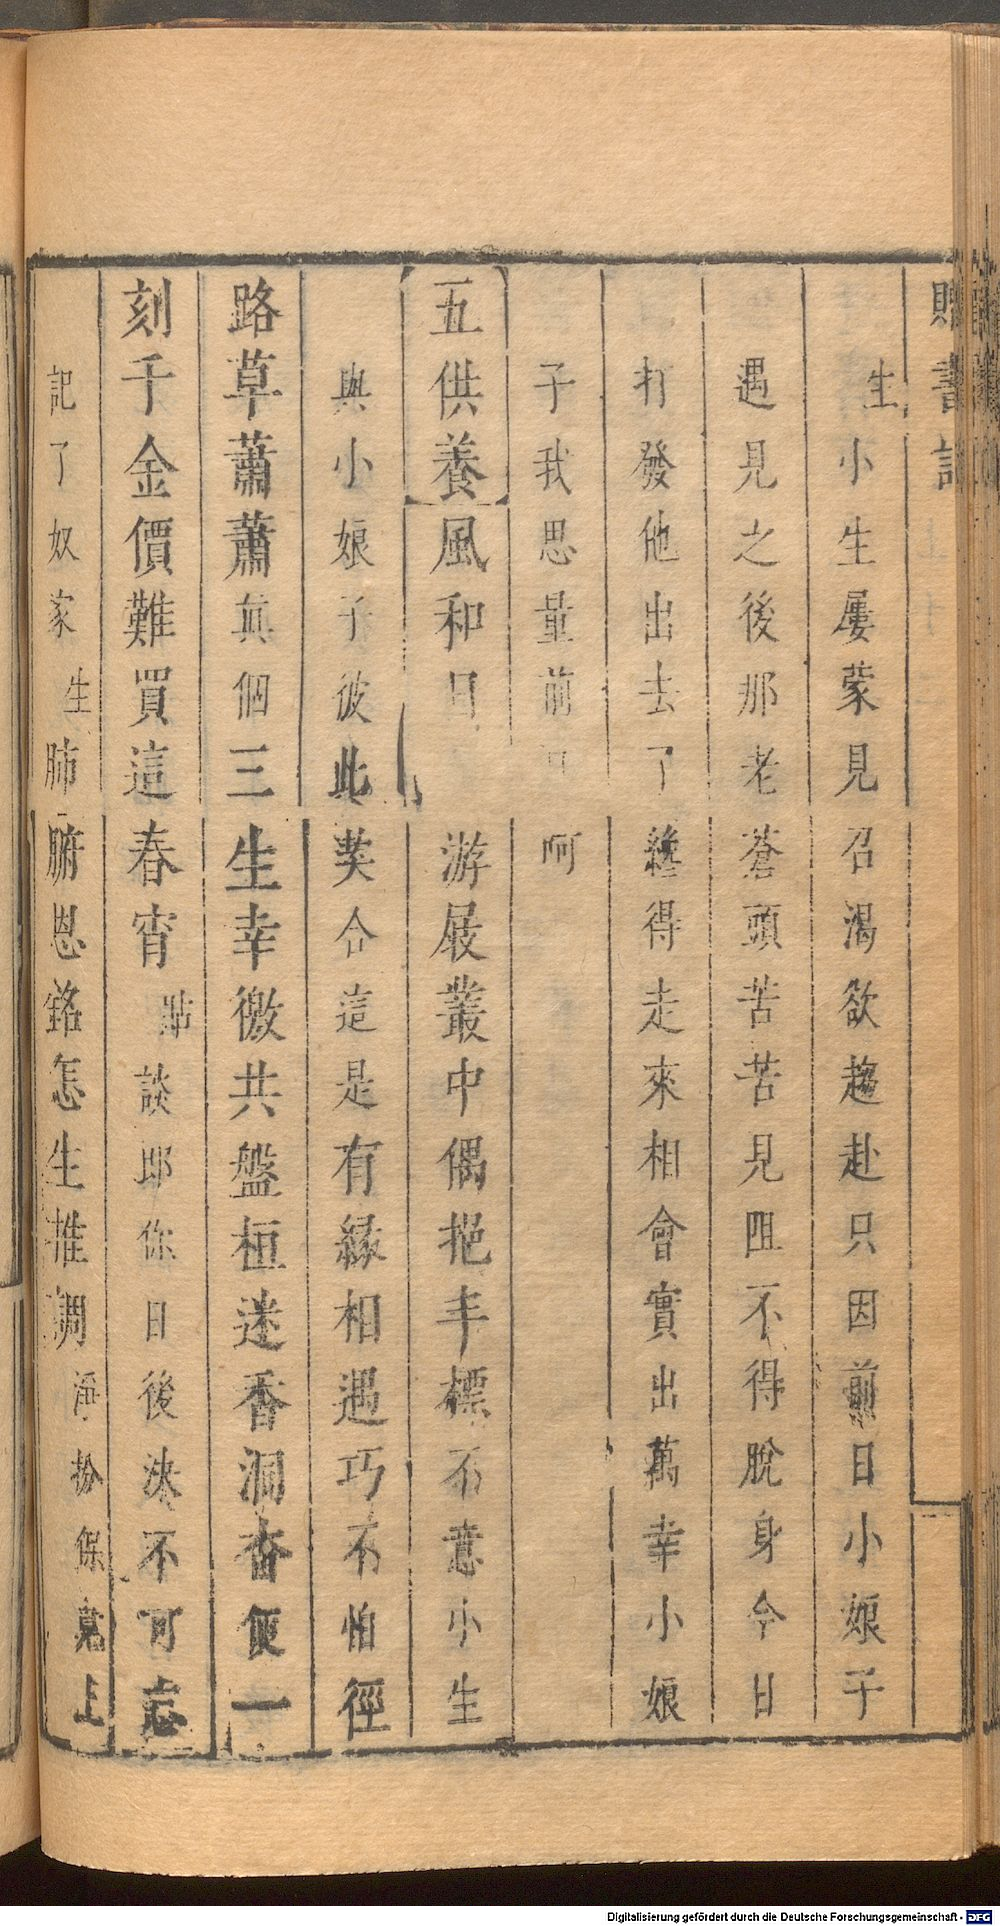 贈書記
生小生屢蒙見召渴欲趨赴只因前日小娘子
遇見之後那老蒼頭苦苦見阻不得脫身今日
打發他出去了纔得走來相會實出萬幸小娘
子我思量前日呵
五供養風和日 游屐叢中偶挹丰標不意小生
與小娘子彼此契合這是有緣相遇巧不怕徑
路草蕭蕭真個三生幸徼共盤桓迷香洞杳便一
刻千金價難買這春宵貼談郎你日後決不可忘
記了奴家生肺腑恩銘怎生推調淨扮保兒上
Digitalisierung gefördert durch die Deutsche Forschungsgemeinschaft - DFG